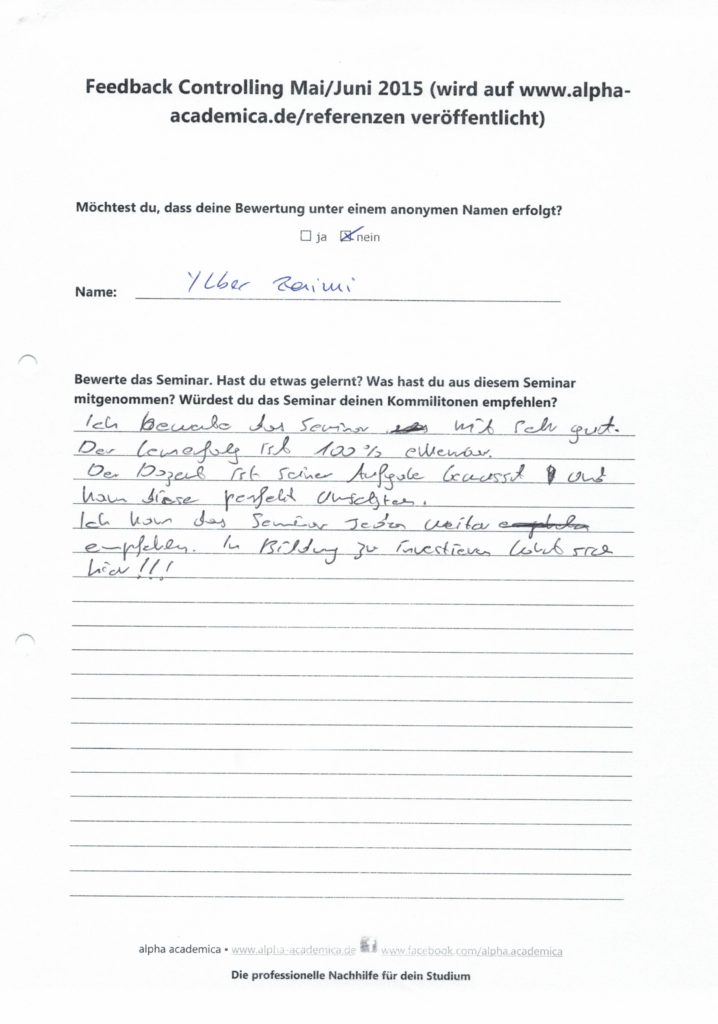 Feedback Controlling Mai/Juni 2015 (wird auf www.alpha-
academica.de/referenzen veröffentlicht)
Möchtest du, dass deine Bewertung unter einem anonymen Namen erfolgt?
☐ ja ☒ nein
Name: Ylber Zenimi
Bewerte das Seminar. Hast du etwas gelernt? Was hast du aus diesem Seminar
mitgenommen? Würdest du das Seminar deinen Kommilitonen empfehlen?
Ich bewerte das Seminar mit sehr gut.
Der Lernerfolg ist 100%
Der Dozent ist seiner Aufgabe bewusst und
kann diese perfekt umsetzen.
Ich kann das Seminar jeden weiter
empfehlen. In Bildung zu investieren lohnt sich
hier!!!
alpha academica • www.alpha-academica.de www.facebook.com/alpha.academica
Die professionelle Nachhilfe für dein Studium